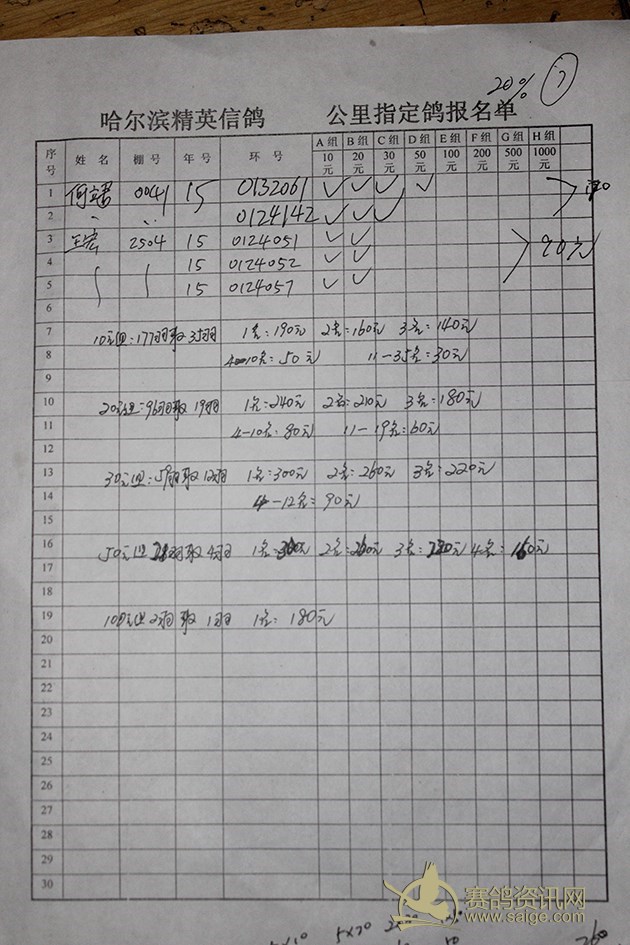 20% 7
哈尔滨精英信鸽 公里指定鸽报名单
序号 姓名 棚号 年号 环号 A组 B组 C组 D组 E组 F组 G组 H组
10元 20元 30元 50元 100元 200元 500元 1000元
1 0041 15 0132061 ✓ ✓ ✓ ✓
2 0124142 ✓ ✓ ✓
3 王宏 2504 15 0124051 ✓ ✓ 90元
4 15 0124052 ✓ ✓
5 15 0124057 ✓ ✓
6
7 10元组:177羽取35羽 1名:190元 2名:160元 3名:140元
8 4-10名:50元 11-35名:30元
9
10 20元组:96羽取19羽 1名:240元 2名:210元 3名:180元
11 4-10名:80元 11-19名:60元
12
13 30元组:59羽取12羽 1名:300元 2名:260元 3名:220元
14 4-12名:90元
15
16 50元组 羽取4羽 1名: 2名:260元 3名: 4名:160元
17
18
19 100元组2羽取1羽 1名:180元
20
21
22
23
24
25
26
27
28
29
30
赛鸽资讯网
www.saige.com
5×20